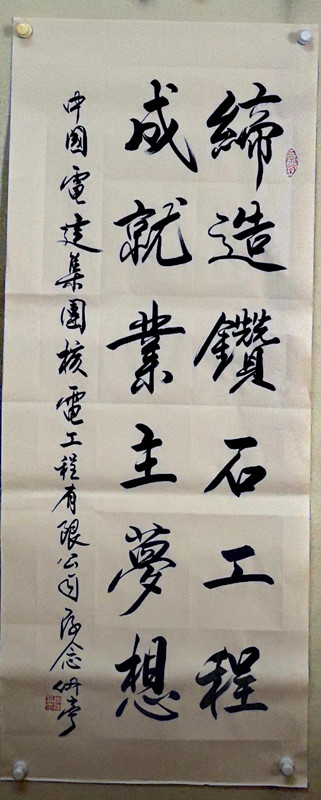 締造鑽石工程
成就業主夢想
中國電建集團核電工程有限公司存念